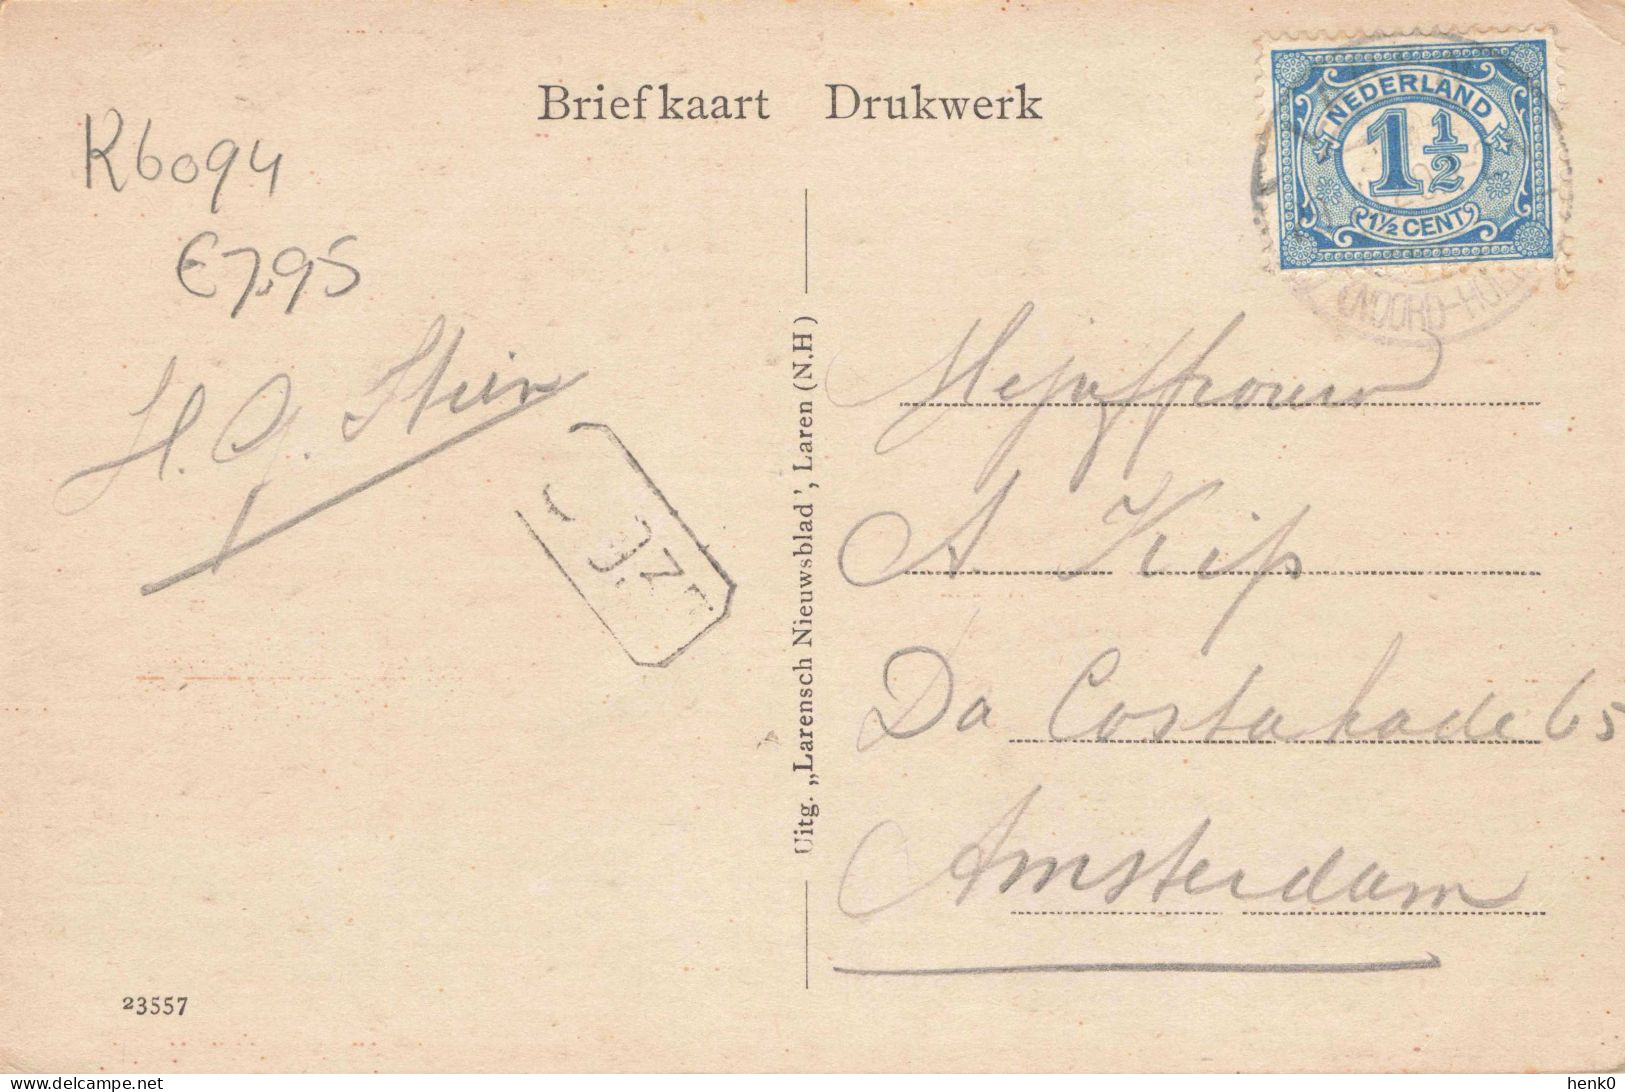 Briefkaart Drukwerk
K6094
€7,95
NEDERLAND
1 1/2
1½ CENT
(NOORD-HOL
H. J. Stein
Uitg. „Larensch Nieuwsblad', Laren (N.H)
Mejuffrouw
A Kip
Da Costakade 65
Amsterdam
23557
delcampe.net
henk0